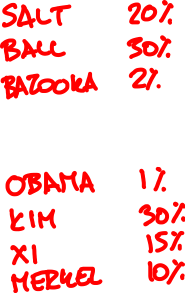 SALT 20%
BALL 30%
BAZOOKA 2%
OBAMA 1%
KIM 30%
XI 15%
MERKEL 10%